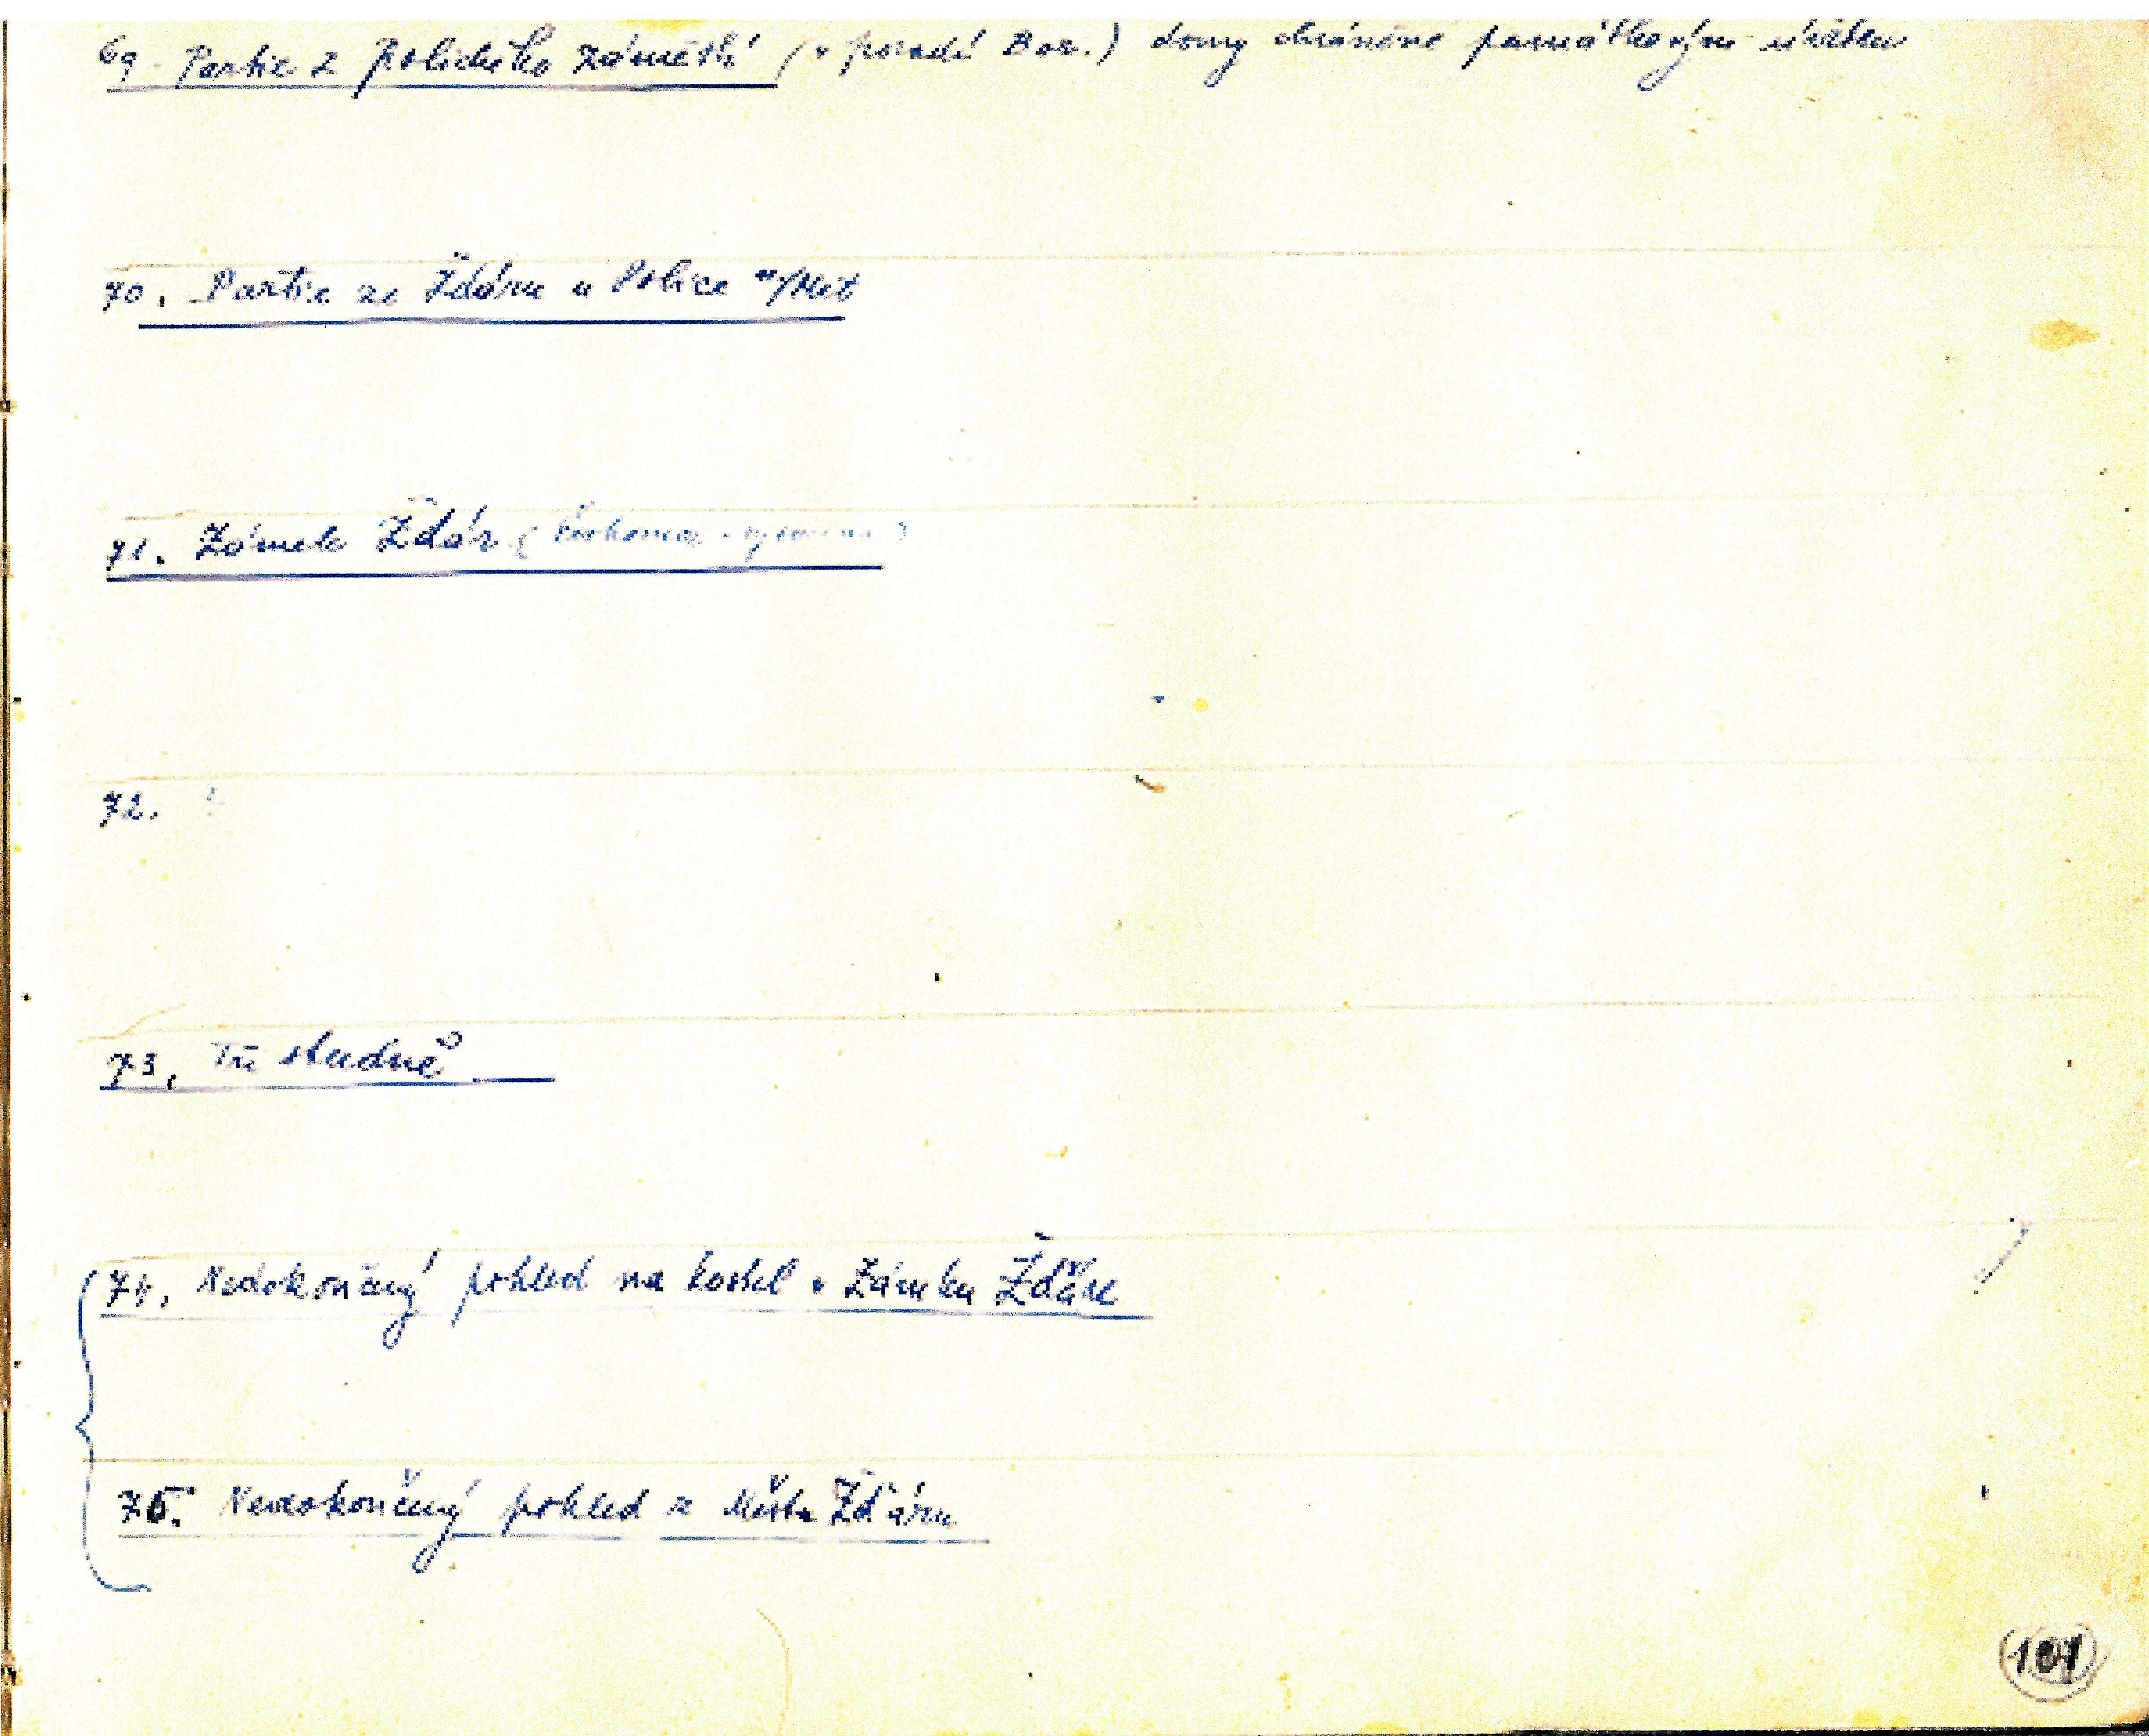 69. Partie z Polického náměstí (v pozadí Bor.) domy chráněné památkovým úřadem
70. Partie ze Žďáru u Police n/Met
71. Zámek Žďár (
72.
73. Tři studně
74. Nedokončený pohled na kostel v Zámku Žďáře
75. Nedokončený pohled z Města Žďáru
101